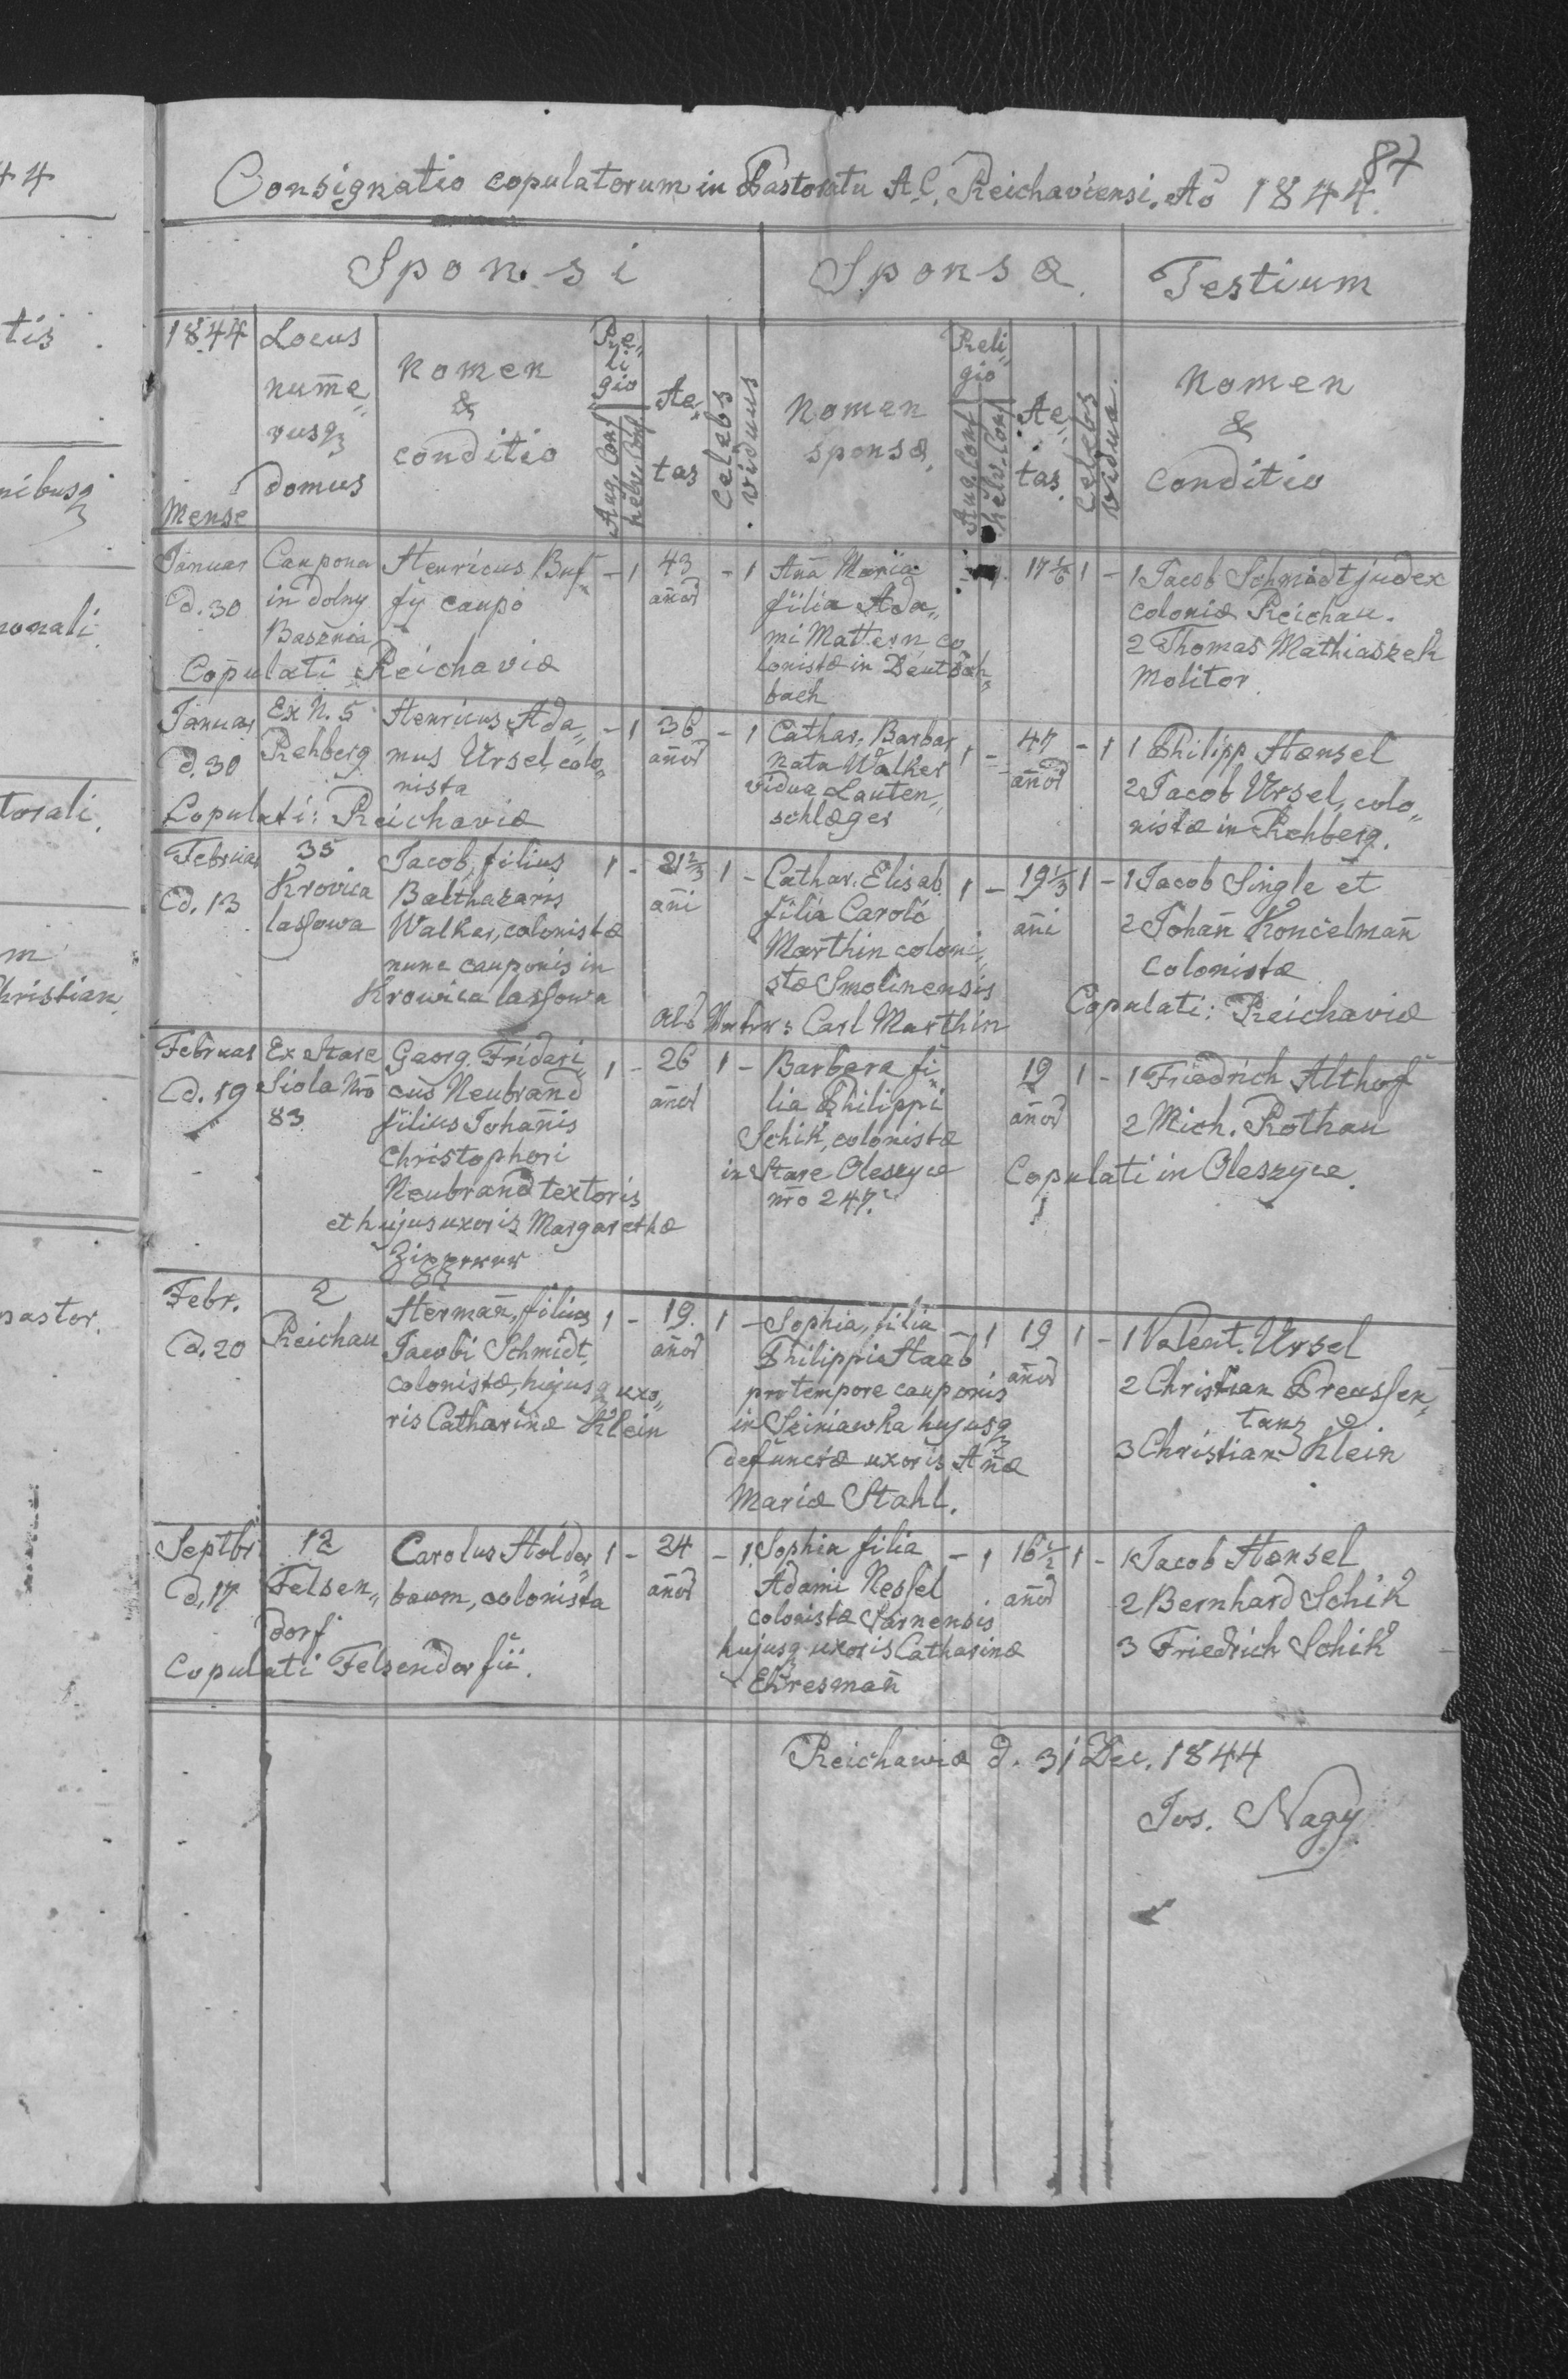 87
Consignatio copulatorum in Pastoratu A.C. Reichaviensi. Ao 1844.
Sponsi
Sponsæ
Testium
1844
Mense
Locus
nume„
rusq
domus
Nomen
&
conditio
Re„
li„
gio
Aug. Conf
Helv. Conf.
Ae„
tas
Celebs
viduus
Nomen
sponsæ
Reli„
gio
Aug. Conf
Helv. Conf
Ae„
tas
Celebs
Vidua
Nomen
&
Conditio
Januar
d. 30
Caupona
in dolny
Basznia
Henricus Buf„
fÿ caupo
- 1
43
añor
- 1
Aña Maria
filia Ada„
mi Mattern co„
lonistæ in Deutsch„
bach
17 1/6
1 -
1 Jacob Schmidt judex
coloniæ Reichau.
2 Thomas Mathiaszek
Molitor.
Copulati Reichaviæ
Januar
d. 30
Ex N. 5
Rehberg
Henricus Ada„
mus Ursel, colo„
nista
- 1
36
añor
- 1
Cathar. Barbar
nata Walker
vidua Lauten„
schlæger
1 -
47
añor
- 1
1 Philipp Hænsel
2 Jacob Ursel, colo„
nistæ in Rehberg.
Copulati: Reichaviæ
Februar
d. 13
35
Krovica
lassowa
Jacob, filius
Balthazaris
Walker, colonistæ
nunc cauponis in
Krowica lassowa
1 -
21 2/3
añi
1 -
Cathar. Elisab.
filia Caroli
Marthin coloni„
stæ Smolinensis
als Vater: Carl Marthin
1 -
19 1/3
añi
1 -
1 Jacob Single et
2 Johañ Koncelmañ
Colonistæ
Copulati: Reichaviæ
Februar
d. 19
Ex Stare
Siola Nro
83
Georg. Frideri„
cus Neubrand
filius Johañis
Christophori
Neubrand textoris
et hujus uxoris Margarethæ
1 -
26
añor
1 -
Barbara fi„
lia Philippi
Schik, colonistæ
in Stare Oleszyce
nro 247.
19
añor
1 -
1 Friedrich Althof
2 Mich. Rothau
Copulati in Oleszyce.
Febr.
d. 20
2
Reichau
Hermañ, filius
Jacobi Schmidt,
colonistæ, hujusq uxo„
ris Catharinæ Klein
1 -
19.
añor
1 -
Sophia, filia
Philippi Staab
pro tempore cauponis
in Seiniawka hujusq
defunctæ uxoris Añæ
Mariæ Stahl.
- 1
19
añor
1 -
1 Valent. Ursel
2 Christian Preussen„
tanz
3 Christian Klein
Septbr
d. 17
12
Felsen„
dorf
Carolus Holder„
baum, colonista
1 -
24
añor
- 1
Sophia filia
Adami Nessel
colonistæ Sarnensis
hujusq uxoris Catharinæ
Ehresmañ
- 1
16 1/2
añor
1 -
1 Jacob Hænsel
2 Bernhard Schik
3 Friedrich Schik
Copulati Felsendorfii.
Reichaviæ d. 31 Dec. 1844
Jos. Nagy
44
tis
nibusq
nonali
torali.
m
Christian.
pastor.